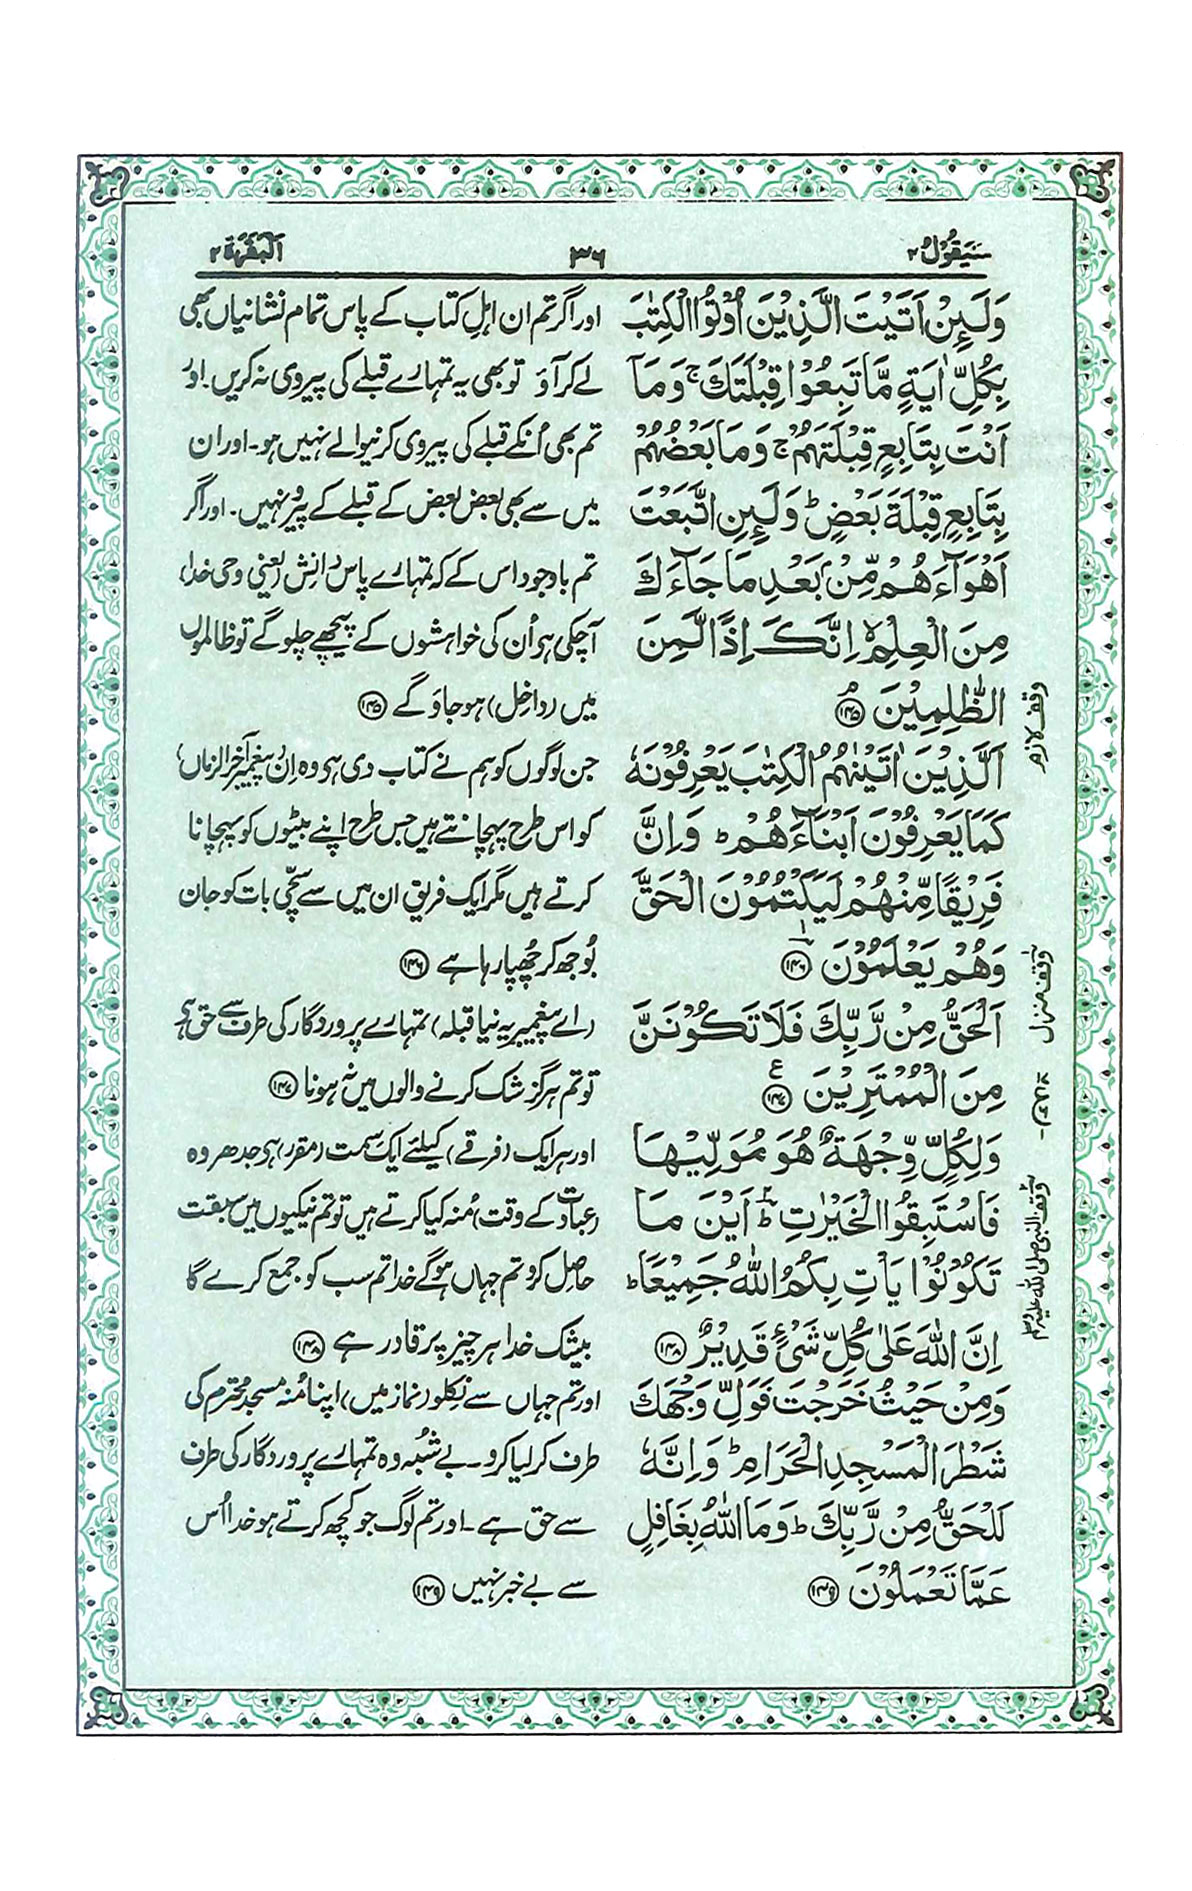 سَيَقُوْلُ ٢ ٣٦ اَلْبَقَرَة ٢
وَلَئِنْ اَتَيْتَ الَّذِيْنَ اُوْتُوا الْكِتٰبَ
بِكُلِّ اٰيَةٍ مَّا تَبِعُوْا قِبْلَتَكَ ۚ وَمَاۤ
اَنْتَ بِتَابِعٍ قِبْلَتَهُمْ ۚ وَمَا بَعْضُهُمْ
بِتَابِعٍ قِبْلَةَ بَعْضٍ ؕ وَلَئِنِ اتَّبَعْتَ
اَهْوَآءَهُمْ مِّنْۢ بَعْدِ مَا جَآءَكَ
مِنَ الْعِلْمِ ۙ اِنَّكَ اِذًا لَّمِنَ
الظّٰلِمِيْنَ ۘ ﴿۱۴۵﴾
اَلَّذِيْنَ اٰتَيْنٰهُمُ الْكِتٰبَ يَعْرِفُوْنَهٗ
كَمَا يَعْرِفُوْنَ اَبْنَآءَهُمْ ؕ وَاِنَّ
فَرِيْقًا مِّنْهُمْ لَيَكْتُمُوْنَ الْحَقَّ
وَهُمْ يَعْلَمُوْنَ ﴿۱۴۶﴾
اَلْحَقُّ مِنْ رَّبِّكَ فَلَا تَكُوْنَنَّ
مِنَ الْمُمْتَرِيْنَ ﴿۱۴۷﴾ ع
وَلِكُلٍّ وِّجْهَةٌ هُوَ مُوَلِّيْهَا
فَاسْتَبِقُوا الْخَيْرٰتِ ؕ اَيْنَ مَا
تَكُوْنُوْا يَاْتِ بِكُمُ اللّٰهُ جَمِيْعًا ؕ
اِنَّ اللّٰهَ عَلٰى كُلِّ شَيْءٍ قَدِيْرٌ ﴿۱۴۸﴾
وَمِنْ حَيْثُ خَرَجْتَ فَوَلِّ وَجْهَكَ
شَطْرَ الْمَسْجِدِ الْحَرَامِ ؕ وَاِنَّهٗ
لَلْحَقُّ مِنْ رَّبِّكَ ؕ وَمَا اللّٰهُ بِغَافِلٍ
عَمَّا تَعْمَلُوْنَ ﴿۱۴۹﴾
اور اگر تم ان اہلِ کتاب کے پاس تمام نشانیاں بھی
لے کر آؤ تو بھی یہ تمہارے قبلے کی پیروی نہ کریں۔ اور
تم بھی اُنکے قبلے کی پیروی کرنیوالے نہیں ہو۔ اور ان
میں سے بھی بعض بعض کے قبلے کے پیرو نہیں۔ اور اگر
تم باوجود اس کے کہ تمہارے پاس دانش (یعنی وحی خدا)
آچکی ہی اُن کی خواہشوں کے پیچھے چلو گے تو ظالموں
میں (داخل) ہو جاؤ گے ﴿۱۴۵﴾
جن لوگوں کو ہم نے کتاب دی ہی وہ اِن (پیغمبر آخر الزماں)
کو اس طرح پہچانتے ہیں جس طرح اپنے بیٹوں کو پہچانا
کرتے ہیں مگر ایک فریق ان میں سے سچّی بات کو جان
بُوجھ کر چُھپا رہا ہے ﴿۱۴۶﴾
(اے پیغمبر یہ نیا قبلہ) تمہارے پروردگار کی طرف سے حق ہی
تو تم ہرگز شک کرنے والوں میں نہ ہونا ﴿۱۴۷﴾
اور ہر ایک (فرقے) کیلئے ایک سمت (مقرر) ہی جدھر وہ
(عبادت کے وقت) مُنہ کیا کرتے ہیں تو تم نیکیوں میں سبقت
حاصل کرو تم جہاں ہوگے خدا تم سب کو جمع کرے گا
بیشک خدا ہر چیز پر قادر ہے ﴿۱۴۸﴾
اور تم جہاں سے نکلو (نماز میں) اپنا مُنہ مسجد محترم کی
طرف کر لیا کرو۔ بے شُبہ وہ تمہارے پروردگار کی طرف
سے حق ہے۔ اور تم لوگ جو کچھ کرتے ہو خدا اُس
سے بے خبر نہیں ﴿۱۴۹﴾
وقف لازم
وقف منزل
وقف النبی صلی اللہ علیہ وسلم